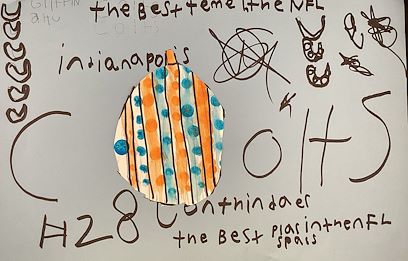 GRIFFIN
the Best teme ithe NFL
COltS
indianapolis
C OltS
#28 Jonthindaer
the Best Plarinthe NFL
spais